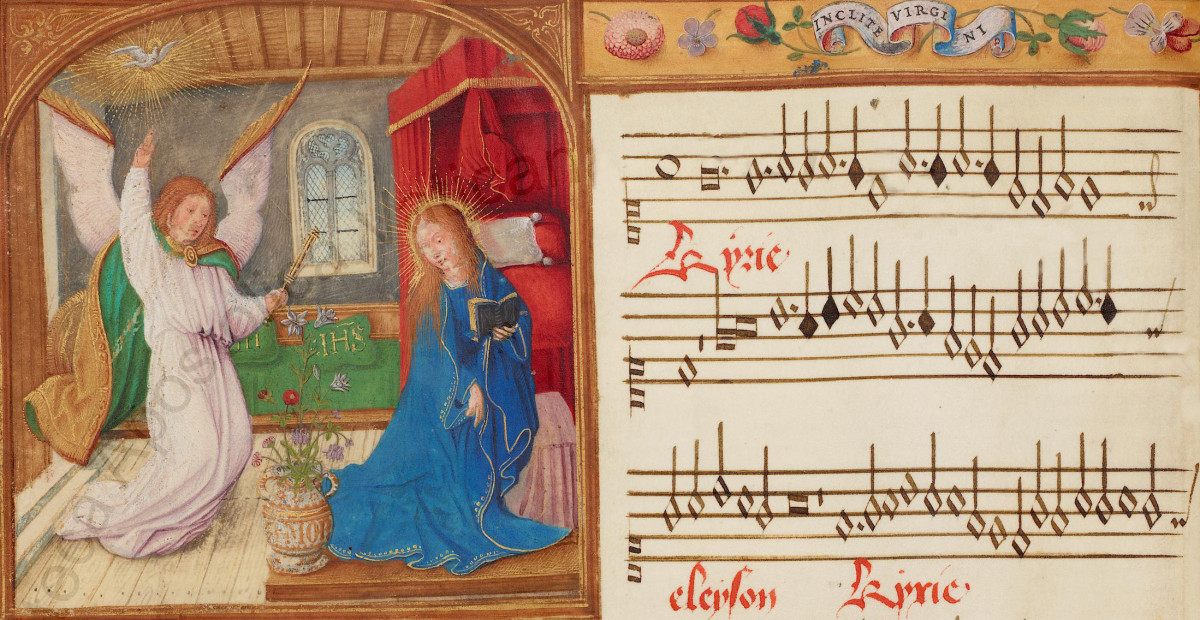 INCLITE VIRGI
NI
IHS
Kyrie
eleyson Kyrie